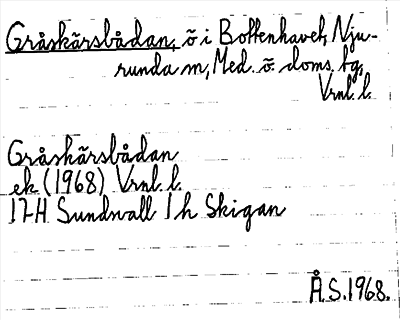 Gråskärsbådan, ö i Bottenhavet, Nju-
runda sn, Med. ö. doms. tg,
Vrnl. l.
Gråskärsbådan
ek (1968) Vrnl. l.
17H Sundsvall 1h Skigan
Å.S. 1968.